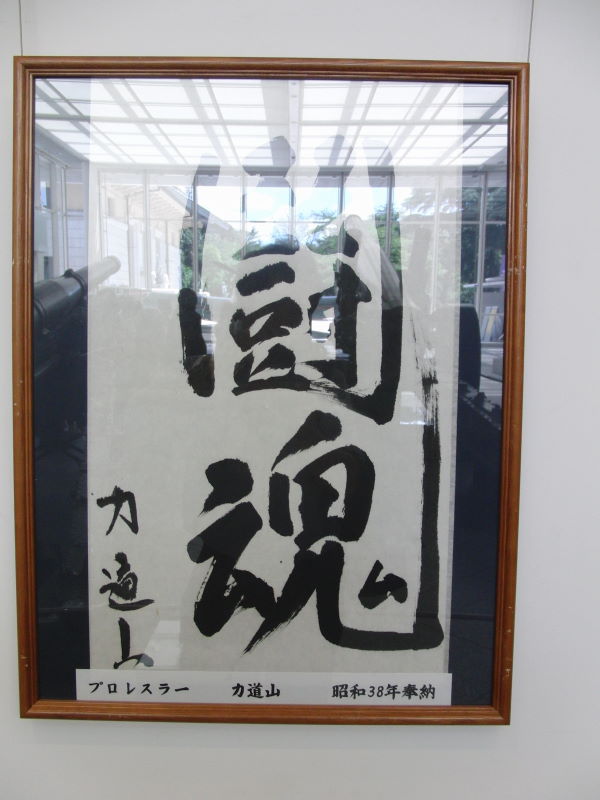 闘魂
力道山
プロレスラー 力道山 昭和38年奉納